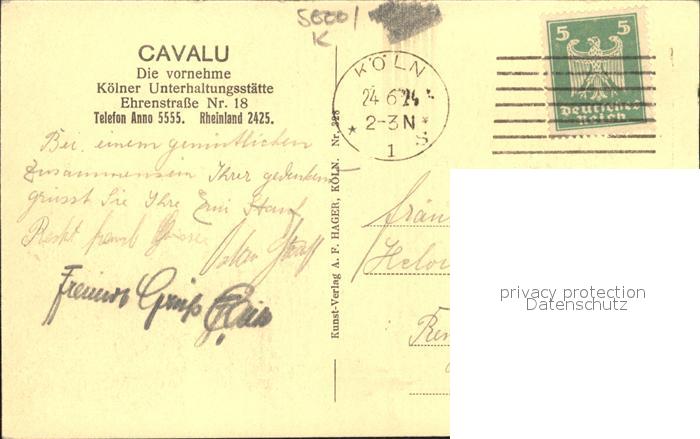 5000/
K
CAVALU
Die vornehme
Kölner Unterhaltungsstätte
Ehrenstraße Nr. 18
Telefon Anno 5555. Rheinland 2425.
Bei einem gemütlichen
Zusammensein Ihrer gedenkend
grüsst Sie Ihre
Grüsse
Gruß
Kunst-Verlag A. F. HAGER, KÖLN. Nr. 328
KÖLN
24.6.24
2-3N
* 1 * S
5 5
Deutsches
Reich
privacy protection
Datenschutz